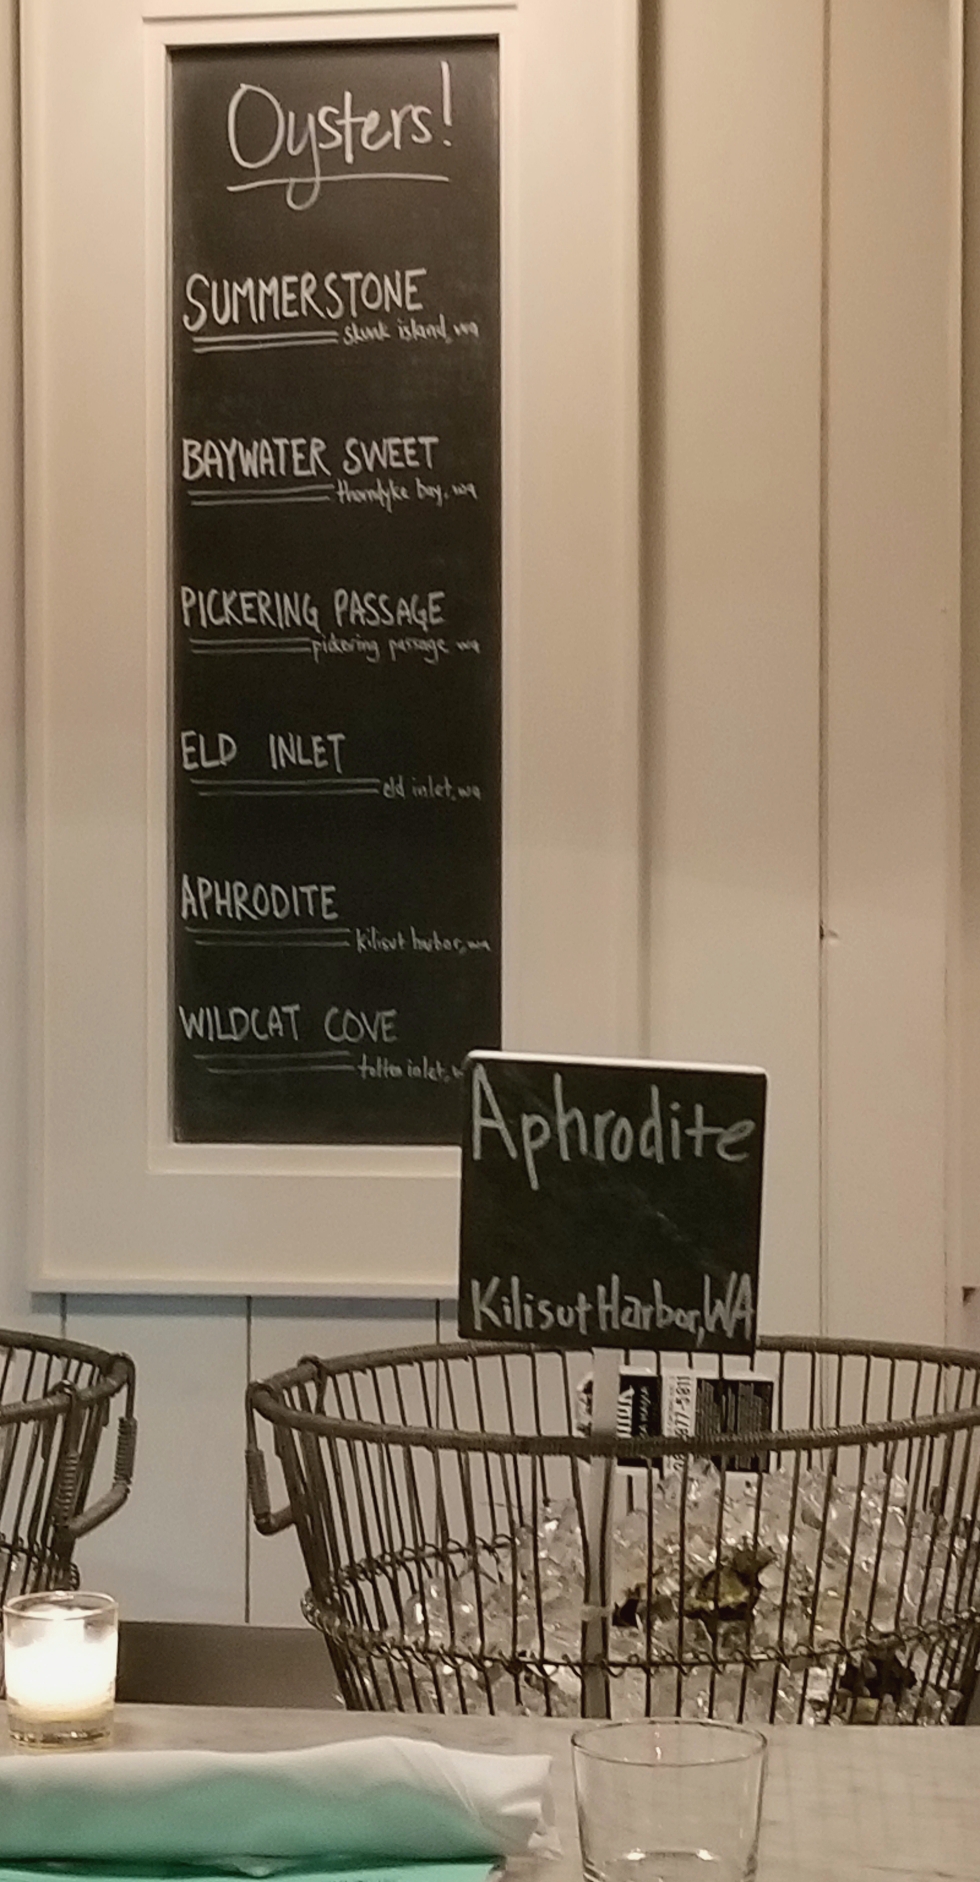 Oysters!
SUMMERSTONE
skunk island, wa
BAYWATER SWEET
thorndyke bay, wa
PICKERING PASSAGE
pickering passage wa
ELD INLET
eld inlet, wa
APHRODITE
kilisut harbor, wa
WILDCAT COVE
totten inlet,
Aphrodite
Kilisut Harbor, WA
877-5811